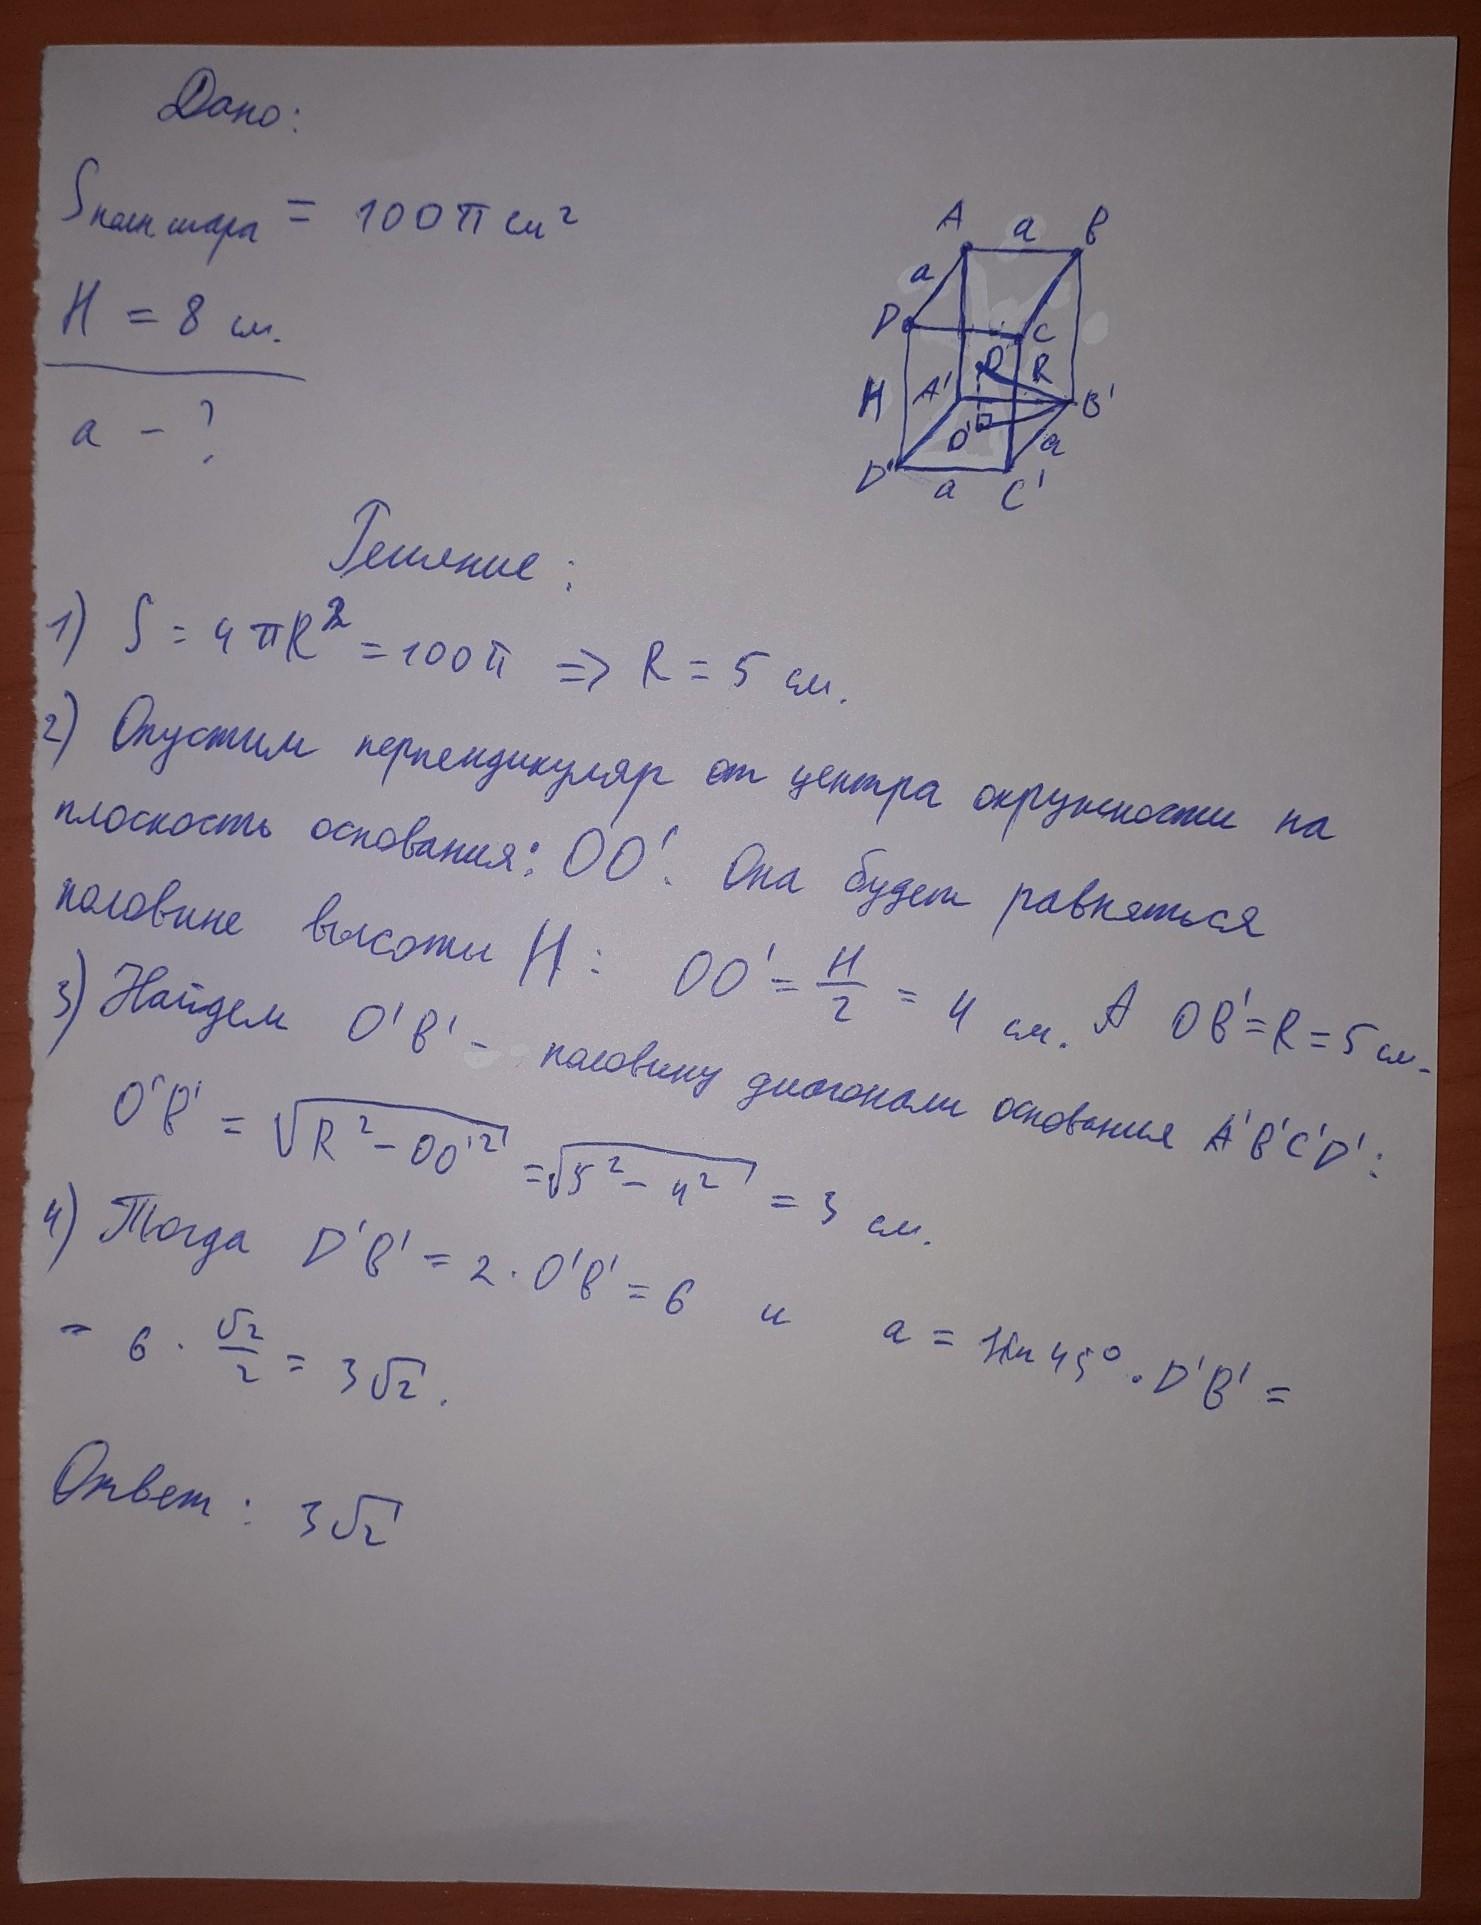 Дано:
Sполн шара = 100π см²
H = 8 см.
a - ?
A a B
a
D C
O R
H A' B'
O' a
D' a C'
Решение:
1) S = 4πR² = 100π => R = 5 см.
2) Опустим перпендикуляр от центра окружности на
плоскость основания: OO'. Она будет равняться
половине высоты H: OO' = H/2 = 4 см. А OB' = R = 5 см.
3) Найдем O'B' - половину диагонали основания A'B'C'D':
O'B' = √(R² - OO'²) = √(5² - 4²) = 3 см.
4) Тогда D'B' = 2 · O'B' = 6 и a = sin 45° · D'B' =
= 6 · √2/2 = 3√2.
Ответ: 3√2